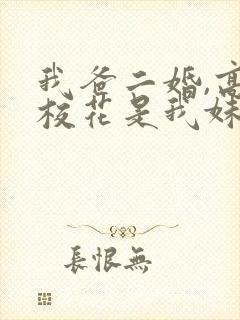 我爸二婚,高
校花是我妹
長恨無